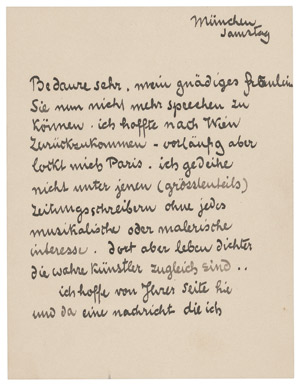 München
Samstag
Bedaure sehr, mein gnädiges fräulein
Sie nun nicht mehr sprechen zu
können. ich hoffte nach Wien
zurückzukommen - vorläufig aber
lockt mich Paris. ich gedeihe
nicht unter jenen (grösstenteils)
zeitungsschreibern ohne jedes
musikalische oder malerische
interesse. dort aber leben dichter
die wahre künstler zugleich sind..
ich hoffe von Ihrer seite hie
und da eine nachricht die ich